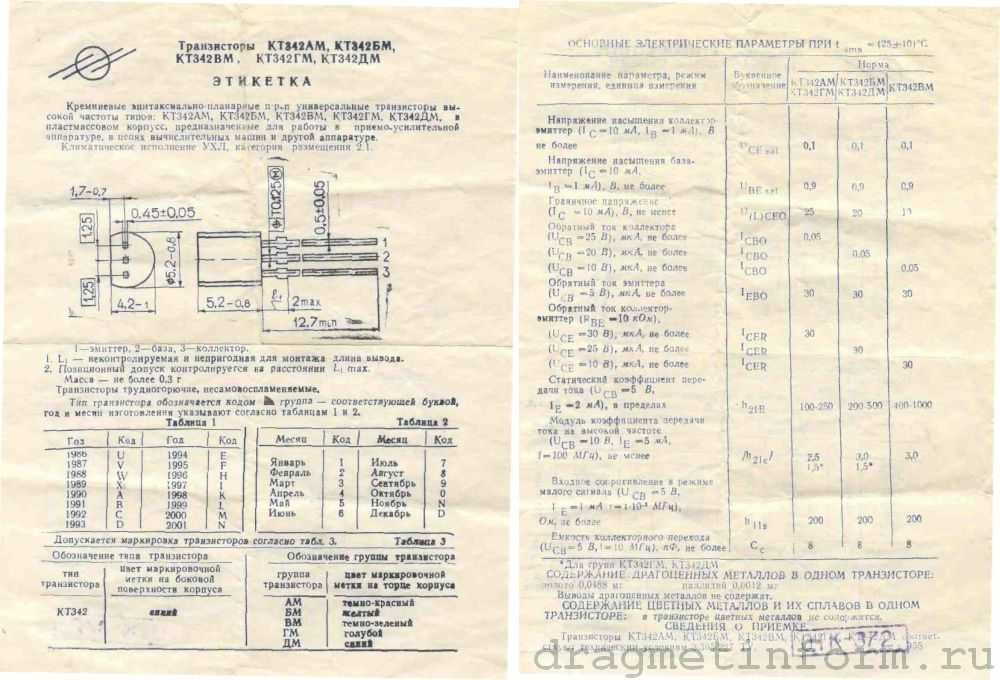 Транзисторы КТ342АМ, КТ342БМ,
КТ342ВМ, КТ342ГМ, КТ342ДМ
ЭТИКЕТКА
Кремниевые эпитаксиально-планарные n-p-n универсальные транзисторы вы-
сокой частоты типов: КТ342АМ, КТ342БМ, КТ342ВМ, КТ342ГМ, КТ342ДМ, в
пластмассовом корпусе, предназначенные для работы в приемо-усилительной
аппаратуре, в цепях вычислительных машин и другой аппаратуре.
Климатическое исполнение УХЛ, категория размещения 2.1.
1,7-0,7
0.45±0,05
0,5±0,05
1,25
1,25
ø5,2-0,8
4,2-1
5,2-0,8
L1
2max
12,7min
1
2
3
1—эмиттер, 2—база, 3—коллектор.
1. L1 — неконтролируемая и непригодная для монтажа длина вывода.
2. Позиционный допуск контролируется на расстоянии L1 max.
Масса — не более 0,3 г
Транзисторы трудногорючие, несамовоспламеняемые.
Тип транзистора обозначается кодом группа — соответствующей буквой,
год и месяц изготовления указывают согласно таблицам 1 и 2.
Таблица 1 Таблица 2
Год Код Год Код Месяц Код Месяц Код
1986 U 1994 E
1987 V 1995 F Январь 1 Июль 7
1988 W 1996 H Февраль 2 Август 8
1989 X 1997 I Март 3 Сентябрь 9
1990 A 1998 K Апрель 4 Октябрь 0
1991 B 1999 L Май 5 Ноябрь N
1992 C 2000 M Июнь 6 Декабрь D
1993 D 2001 N
Допускается маркировка транзисторов согласно табл. 3. Таблица 3
Обозначение типа транзистора Обозначение группы транзистора
тип транзистора цвет маркировочной метки на боковой поверхности корпуса группа транзистора цвет маркировочной метки на торце корпуса
КТ342 синий АМ темно-красный
БМ желтый
ВМ темно-зеленый
ГМ голубой
ДМ синий
ОСНОВНЫЕ ЭЛЕКТРИЧЕСКИЕ ПАРАМЕТРЫ ПРИ t amb = (25±10)°C.
Наименование параметра, режим измерения, единица измерения Буквенное обозначение Норма
КТ342АМ КТ342БМ КТ342ВМ
КТ342ГМ КТ342ДМ
Напряжение насыщения коллектор-
эмиттер (IC=10 мА, IB=1 мА), В
не более UCE sat 0,1 0,1 0,1
Напряжение насыщения база-
эмиттер (IC=10 мА,
IB=1 мА), В, не более UBE sat 0,9 0,9 0,9
Граничное напряжение
(IC=10 мА), В, не менее U(L)CEO 25 20 10
Обратный ток коллектора
(UCB=25 В), мкА, не более ICBO 0,05
(UCB=20 В), мкА, не более ICBO 0,05
(UCB=10 В), мкА, не более ICBO 0,05
Обратный ток эмиттера
(U=5 В), мкА, не более IEBO 30 30 30
Обратный ток коллектор-
эмиттер (RBE=10 кОм),
(UCE=30 В), мкА, не более ICER 30
(UCE=25 В), мкА, не более ICER 30
(UCE=10 В), мкА, не более ICER 30
Статический коэффициент пере-
дачи тока (UCB=5 В,
IE=2 мА), в пределах h21E 100-250 200-500 400-1000
Модуль коэффициента передачи
тока на высокой частоте
(UCB=10 В, IE=5 мА,
f=100 МГц), не менее /h21e/ 2,5 3,0 3,0
1,5* 1,5*
Входное сопротивление в режиме
малого сигнала (UCB=5 В,
IE=1 мА МГц),
Ом, не более 200 200 200
Емкость коллекторного перехода
(UCB=5 В, f=10 МГц), пФ, не более Cc 8 8 8
*Для групп КТ342ГМ, КТ342ДМ
СОДЕРЖАНИЕ ДРАГОЦЕННЫХ МЕТАЛЛОВ В ОДНОМ ТРАНЗИСТОРЕ:
золото 0,0488 мг палладий 0,0012 мг
Выводы драгоценных металлов не содержат.
СОДЕРЖАНИЕ ЦВЕТНЫХ МЕТАЛЛОВ И ИХ СПЛАВОВ В ОДНОМ
ТРАНЗИСТОРЕ: в транзисторе цветных металлов не содержится.
СВЕДЕНИЯ О ПРИЕМКЕ
Транзисторы КТ342АМ, КТ342БМ, КТ342ВМ,
техническим условиям
372
dragmetinform.ru